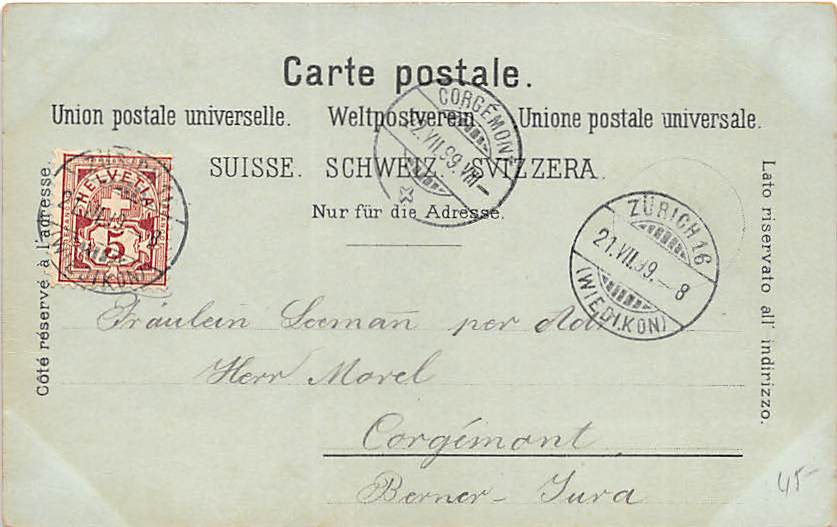 Carte postale.
Union postale universelle. Weltpostverein. Unione postale universale.
SUISSE. SCHWEIZ. SVIZZERA.
Nur für die Adresse.
Côté réservé à l'adresse.
Lato riservato all' indirizzo.
HELVETIA
5
CORGÉMONT
22.VII.99.VIII–
ZÜRICH 16
21.VII.99.–8
(WIEDIKON)
Fräulein Seeman̄ per Adr
Herr Morel
Corgémont
Berner-Jura
45-